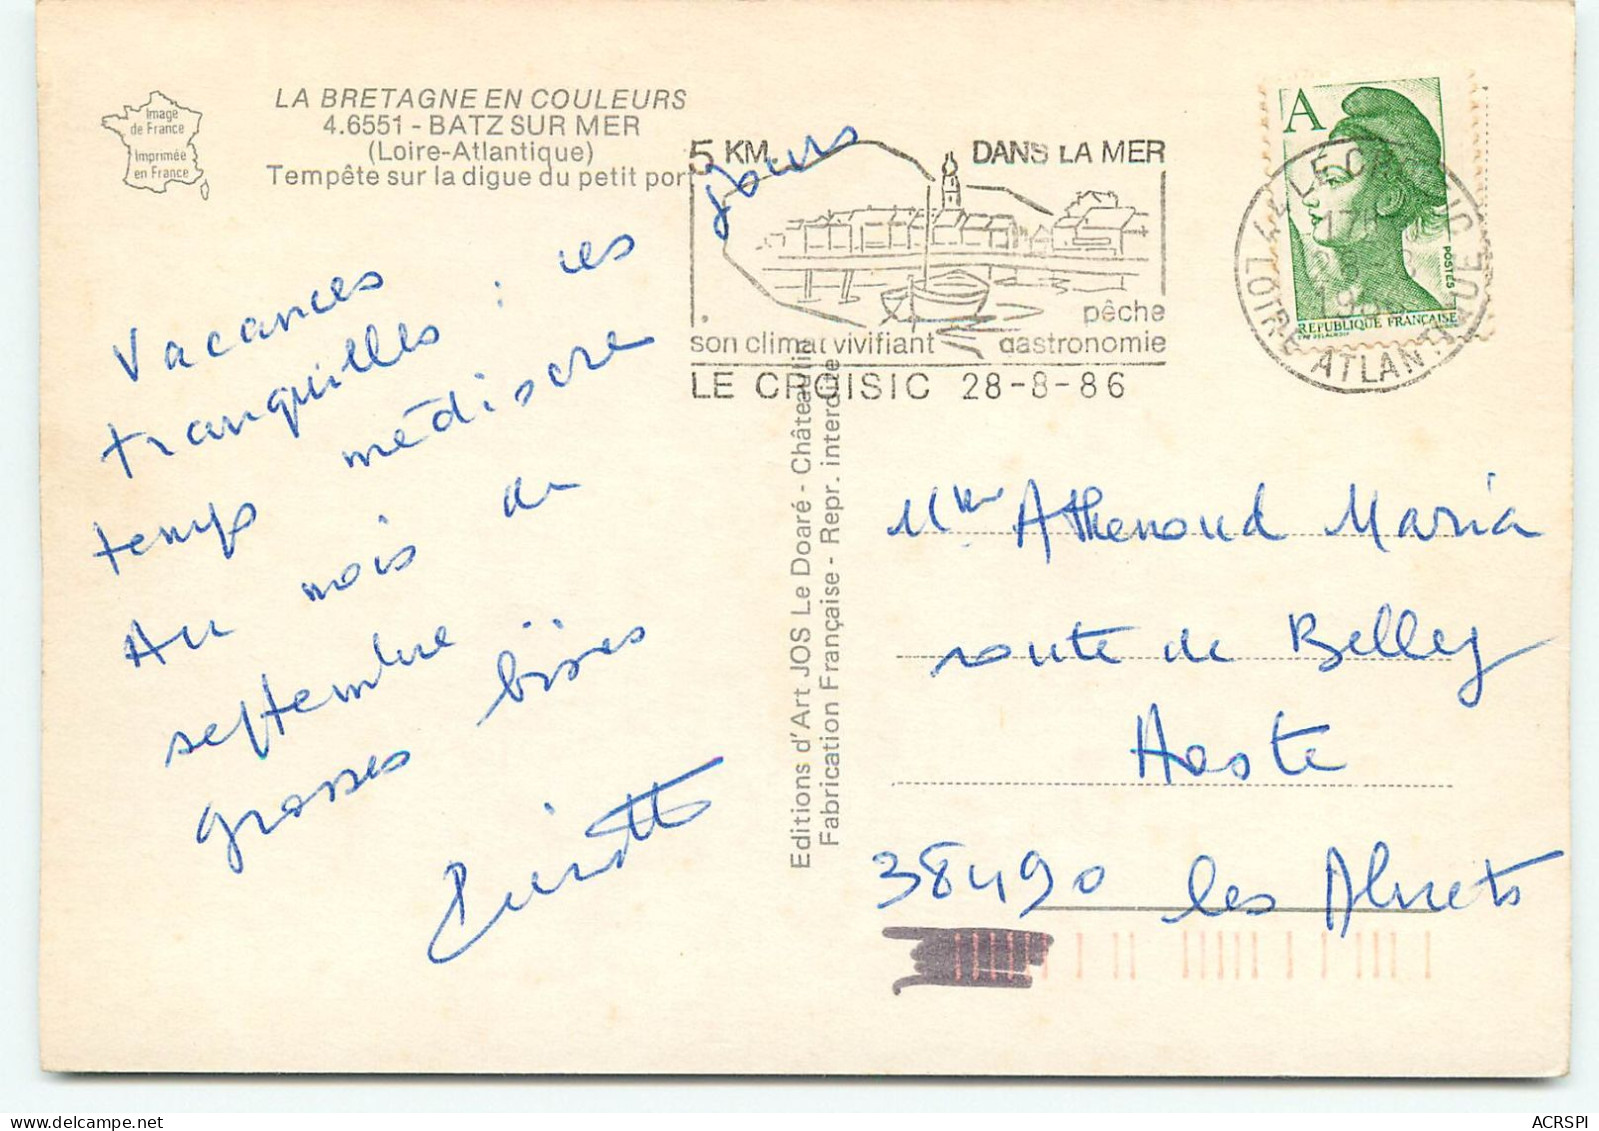 Image
de France
Imprimée
en France
LA BRETAGNE EN COULEURS
4.6551 - BATZ SUR MER
(Loire-Atlantique)
Tempête sur la digue du petit port
5 KM DANS LA MER
pêche
son climat vivifiant gastronomie
LE CROISIC 28-8-86
A
POSTES
REPUBLIQUE FRANÇAISE
44 LE CROISIC
28-8
1986
LOIRE ATLANTIQUE
Vacances
tranquilles : ces jours
temps médiocre
Au mois de
septembre
grosses bises
Editions d'Art JOS Le Doaré - Châteaulin
Fabrication Française - Repr. interdite
Mme Athenoud Maria
route de Belley
Aoste
38490 les Abrets
ACRSPI